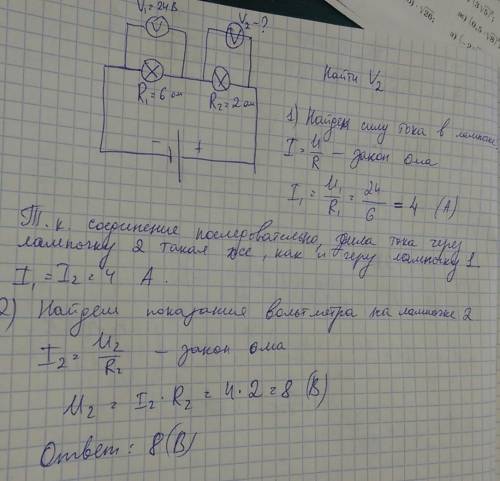 V₁=24В
V₂-?
R₁=6 ом
R₂=2 ом
- +
Найти V₂
1) Найдем силу тока в лампочке
I = U/R - закон ома
I₁ = U₁/R₁ = 24/6 = 4 (А)
Т.к. соединение последовательно, сила тока через
лампочку 2 такая же, как и через лампочку 1
I₁ = I₂ = 4 А.
2) Найдем показания вольтметра на лампочке 2
I₂ = U₂/R₂ - закон ома
U₂ = I₂·R₂ = 4·2=8 (В)
Ответ: 8(В)